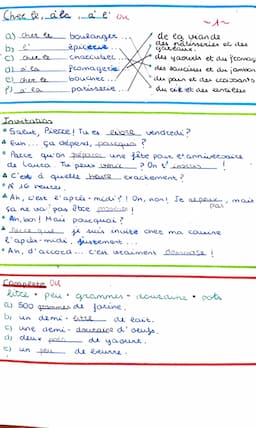 Chez le, à la, à l' ou ~1~
a) chez le boulanger... de la viande
b) l' épicerie... des pâtisseries et des gâteaux.
c) chez le charcutier... des yaourts et du fromage
d) à la fromagerie des saucisses et du jambon
e) chez le boucher... du pain et des croissants
f) à la pâtisserie... du
Invitation
Salut, Pierre! Tu es libre vendredi?
Eun... Ça dépend, pourquoi?
Parce qu'on prépare une fête pour l'anniversaire
de Laura. Tu peux venir? On t'invite!
C'est à quelle heure exactement?
À 16 heures.
Ah, c'est l'après-midi?! Oh, non! Je , mais
ça ne va pas être possible!
Ah, bon! Mais pourquoi?
Parce que je suis invité chez ma cousine
l'après-midi, justement...
Ah, d'accord... c'est vraiment dommage!
Complète ou
litre • peu • grammes • douzaine • pots
a) 500 grammes de farine.
b) un demi-litre de lait.
c) une demi-douzaine d'œufs.
d) deux pots de yaourt.
e) un peu de beurre.